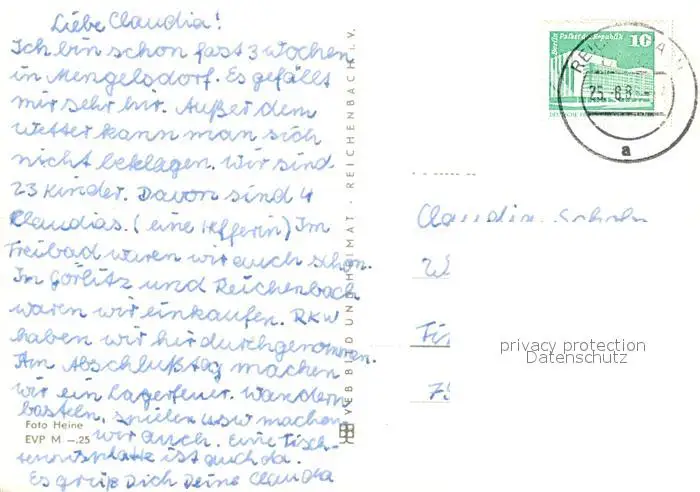 Liebe Claudia!
Ich bin schon fast 3 Wochen
in Mengelsdorf. Es gefällt
mir sehr hir. Außer dem
Wetter kann man sich
nicht beklagen. Wir sind
23 Kinder. Davon sind 4
Claudias. (eine Helferin) Im
Freibad waren wir auch schon.
In Görlitz und Reichenbach
waren wir einkaufen. RKW
haben wir hir durchgenommen.
Am Abschlußtag machen
wir ein Lagerfeuer. Wandern
basteln, spielen usw machen
wir auch. Eine Tisch-
tennisplatte ist auch da.
Es grüß Dich Deine Claudia
Foto Heine
EVP M –.25
VEB BILD UND HEIMAT · REICHENBACH i. V.
Berlin Palast der Republik
10
25.-6.8
a
Claudia
privacy protection
Datenschutz